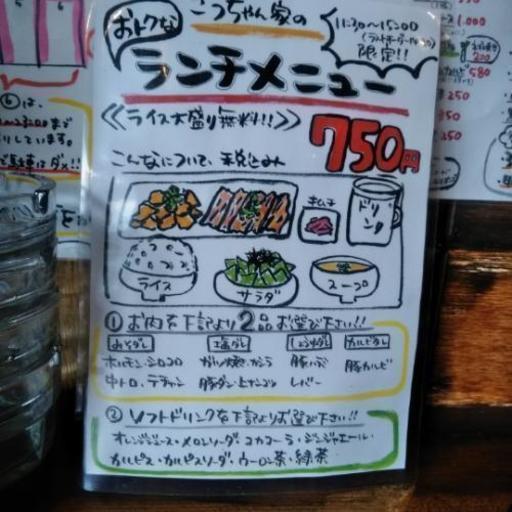 おトクな
こっちゃん家の
11:30〜15:00
限定!!
ランチメニュー
≪ライス大盛り無料!!≫
750円
こんなについて、税込み
キムチ
ドリンク
ライス
サラダ
スープ
① お肉を下記より2品お選び下さい!!
みそダレ
塩ダレ
しょうゆダレ
カルビダレ
ホルモン・シロコロ
豚ハラミ
豚カルビ
中トロ・テチャン
豚タン・上ナンコツ
レバー
② ソフトドリンクを下記よりお選び下さい!!
オレンジジュース・メロンソーダ・コカコーラ・ジンジャエール・
カルピス・カルピスソーダ・ウーロン茶・緑茶
1.000
200
580
250
350
450
しています。